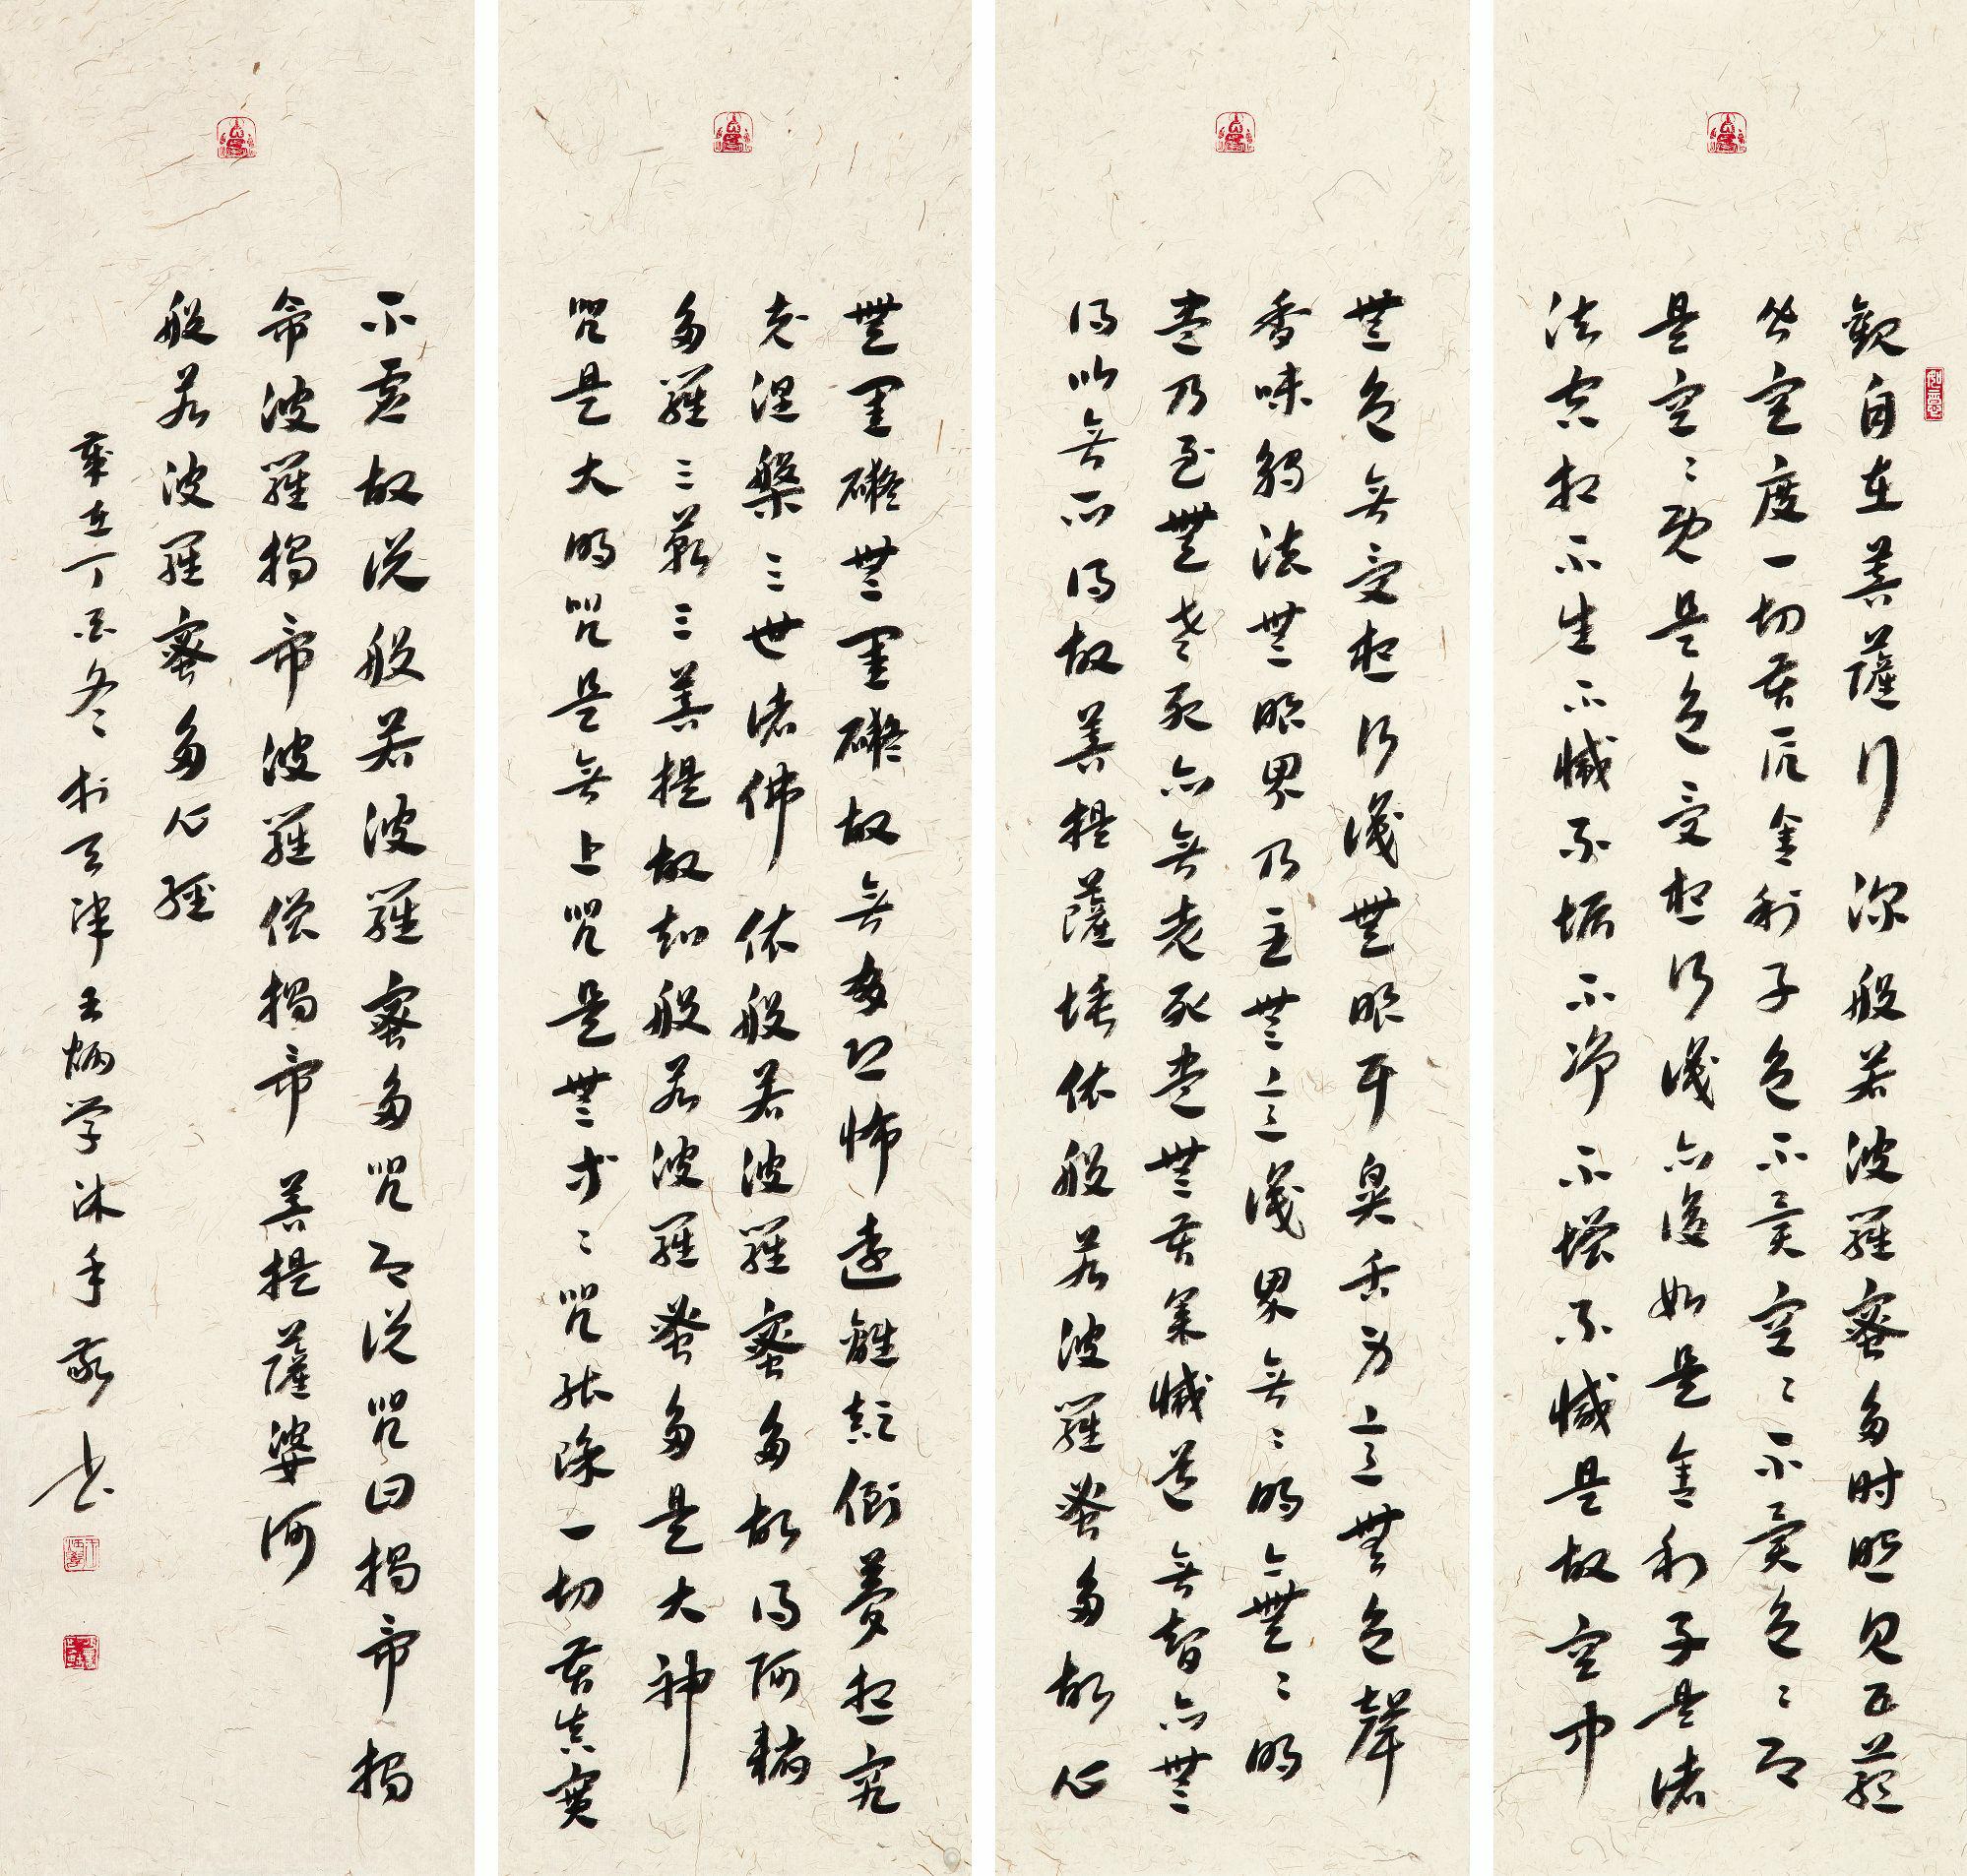 觀自在菩薩行深般若波羅蜜多時照見五蘊
皆空度一切苦厄舍利子色不異空〻不異色〻即
是空〻既是色受想行識亦復如是舍利子是諸
法空相不生不滅不垢不淨不增不減是故空中
無色無受想行識無眼耳鼻舌身意無色聲
香味觸法無眼界乃至無意識界無〻明亦無〻明
盡乃至無老死亦無老死盡無苦集滅道無智亦無
得以無所得故菩提薩埵依般若波羅蜜多故心
無罣礙無罣礙故無有恐怖遠離顛倒夢想究
竟涅槃三世諸佛依般若波羅蜜多故得阿耨
多羅三藐三菩提故知般若波羅蜜多是大神
咒是大明咒是無上咒是無等〻咒能除一切苦真實
不虛故說般若波羅蜜多咒即說咒曰揭帝揭
帝波羅揭帝波羅僧揭帝菩提薩婆訶
般若波羅蜜多心經
歲在丁酉冬於天津王炳学沐手敬书